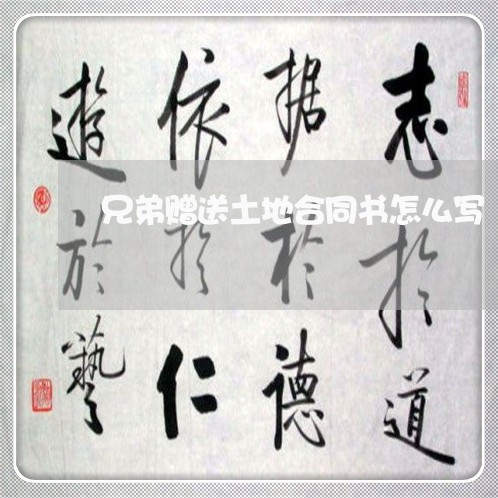 志於道
据於德
依於仁
遊於藝
兄弟赠送土地合同书怎么写